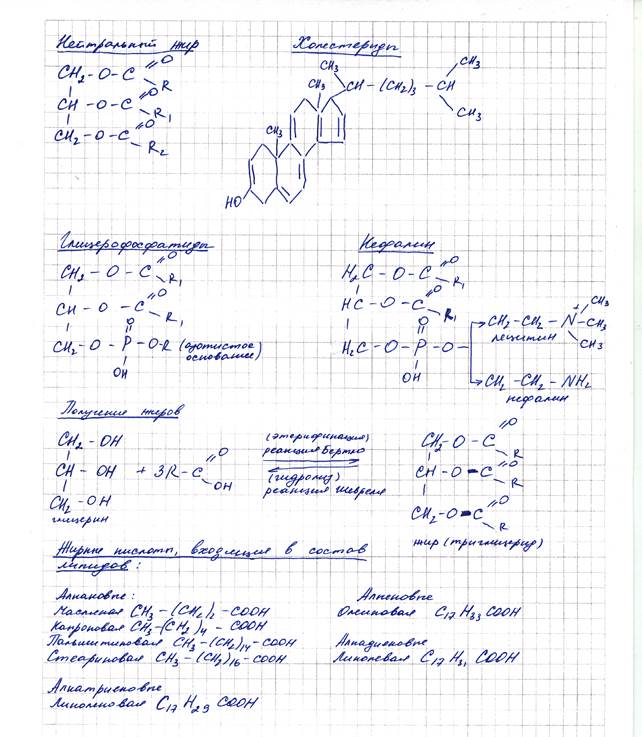 Нейтральный жир
CH₂ – O – C =O
R
CH – O – C =O
R₁
CH₂ – O – C =O
R₂
Холестериды
CH₃
CH – (CH₂)₃ – CH
CH₃
CH₃
CH₃
CH₃
HO
Глицерофосфатиды
CH₂ – O – C =O
R₁
CH – O – C =O
R₁
CH₂ – O – P – O-R (азотистое
основание)
O
OH
Кефалин
H₂C – O – C =O
R₁
HC – O – C =O
R₁
O
H₂C – O – P – O –
OH
CH₂ – CH₂ – N⁺ – CH₃
CH₃
CH₃
лецитин
CH₂ – CH₂ – NH₂
кефалин
Получение жиров
CH₂ – OH
CH – OH + 3R – C =O
OH
CH₂ – OH
глицерин
(этерификация)
реакция Бертло
(гидролиз)
реакция Шевреля
CH₂ – O – C =O
R
CH – O – C =O
R
CH₂ – O – C =O
R
жир (триглицерид)
Жирные кислоты, входящие в состав
липидов:
Алкановые:
Масляная CH₃ – (CH₂)₂ – COOH
Капроновая CH₃ – (CH₂)₄ – COOH
Пальмитиновая CH₃ – (CH₂)₁₄ – COOH
Стеариновая CH₃ – (CH₂)₁₆ – COOH
Алкеновые
Олеиновая C₁₇H₃₃COOH
Алкадиеновые
Линолевая C₁₇H₃₁COOH
Алкатриеновые
Линоленовая C₁₇H₂₉COOH